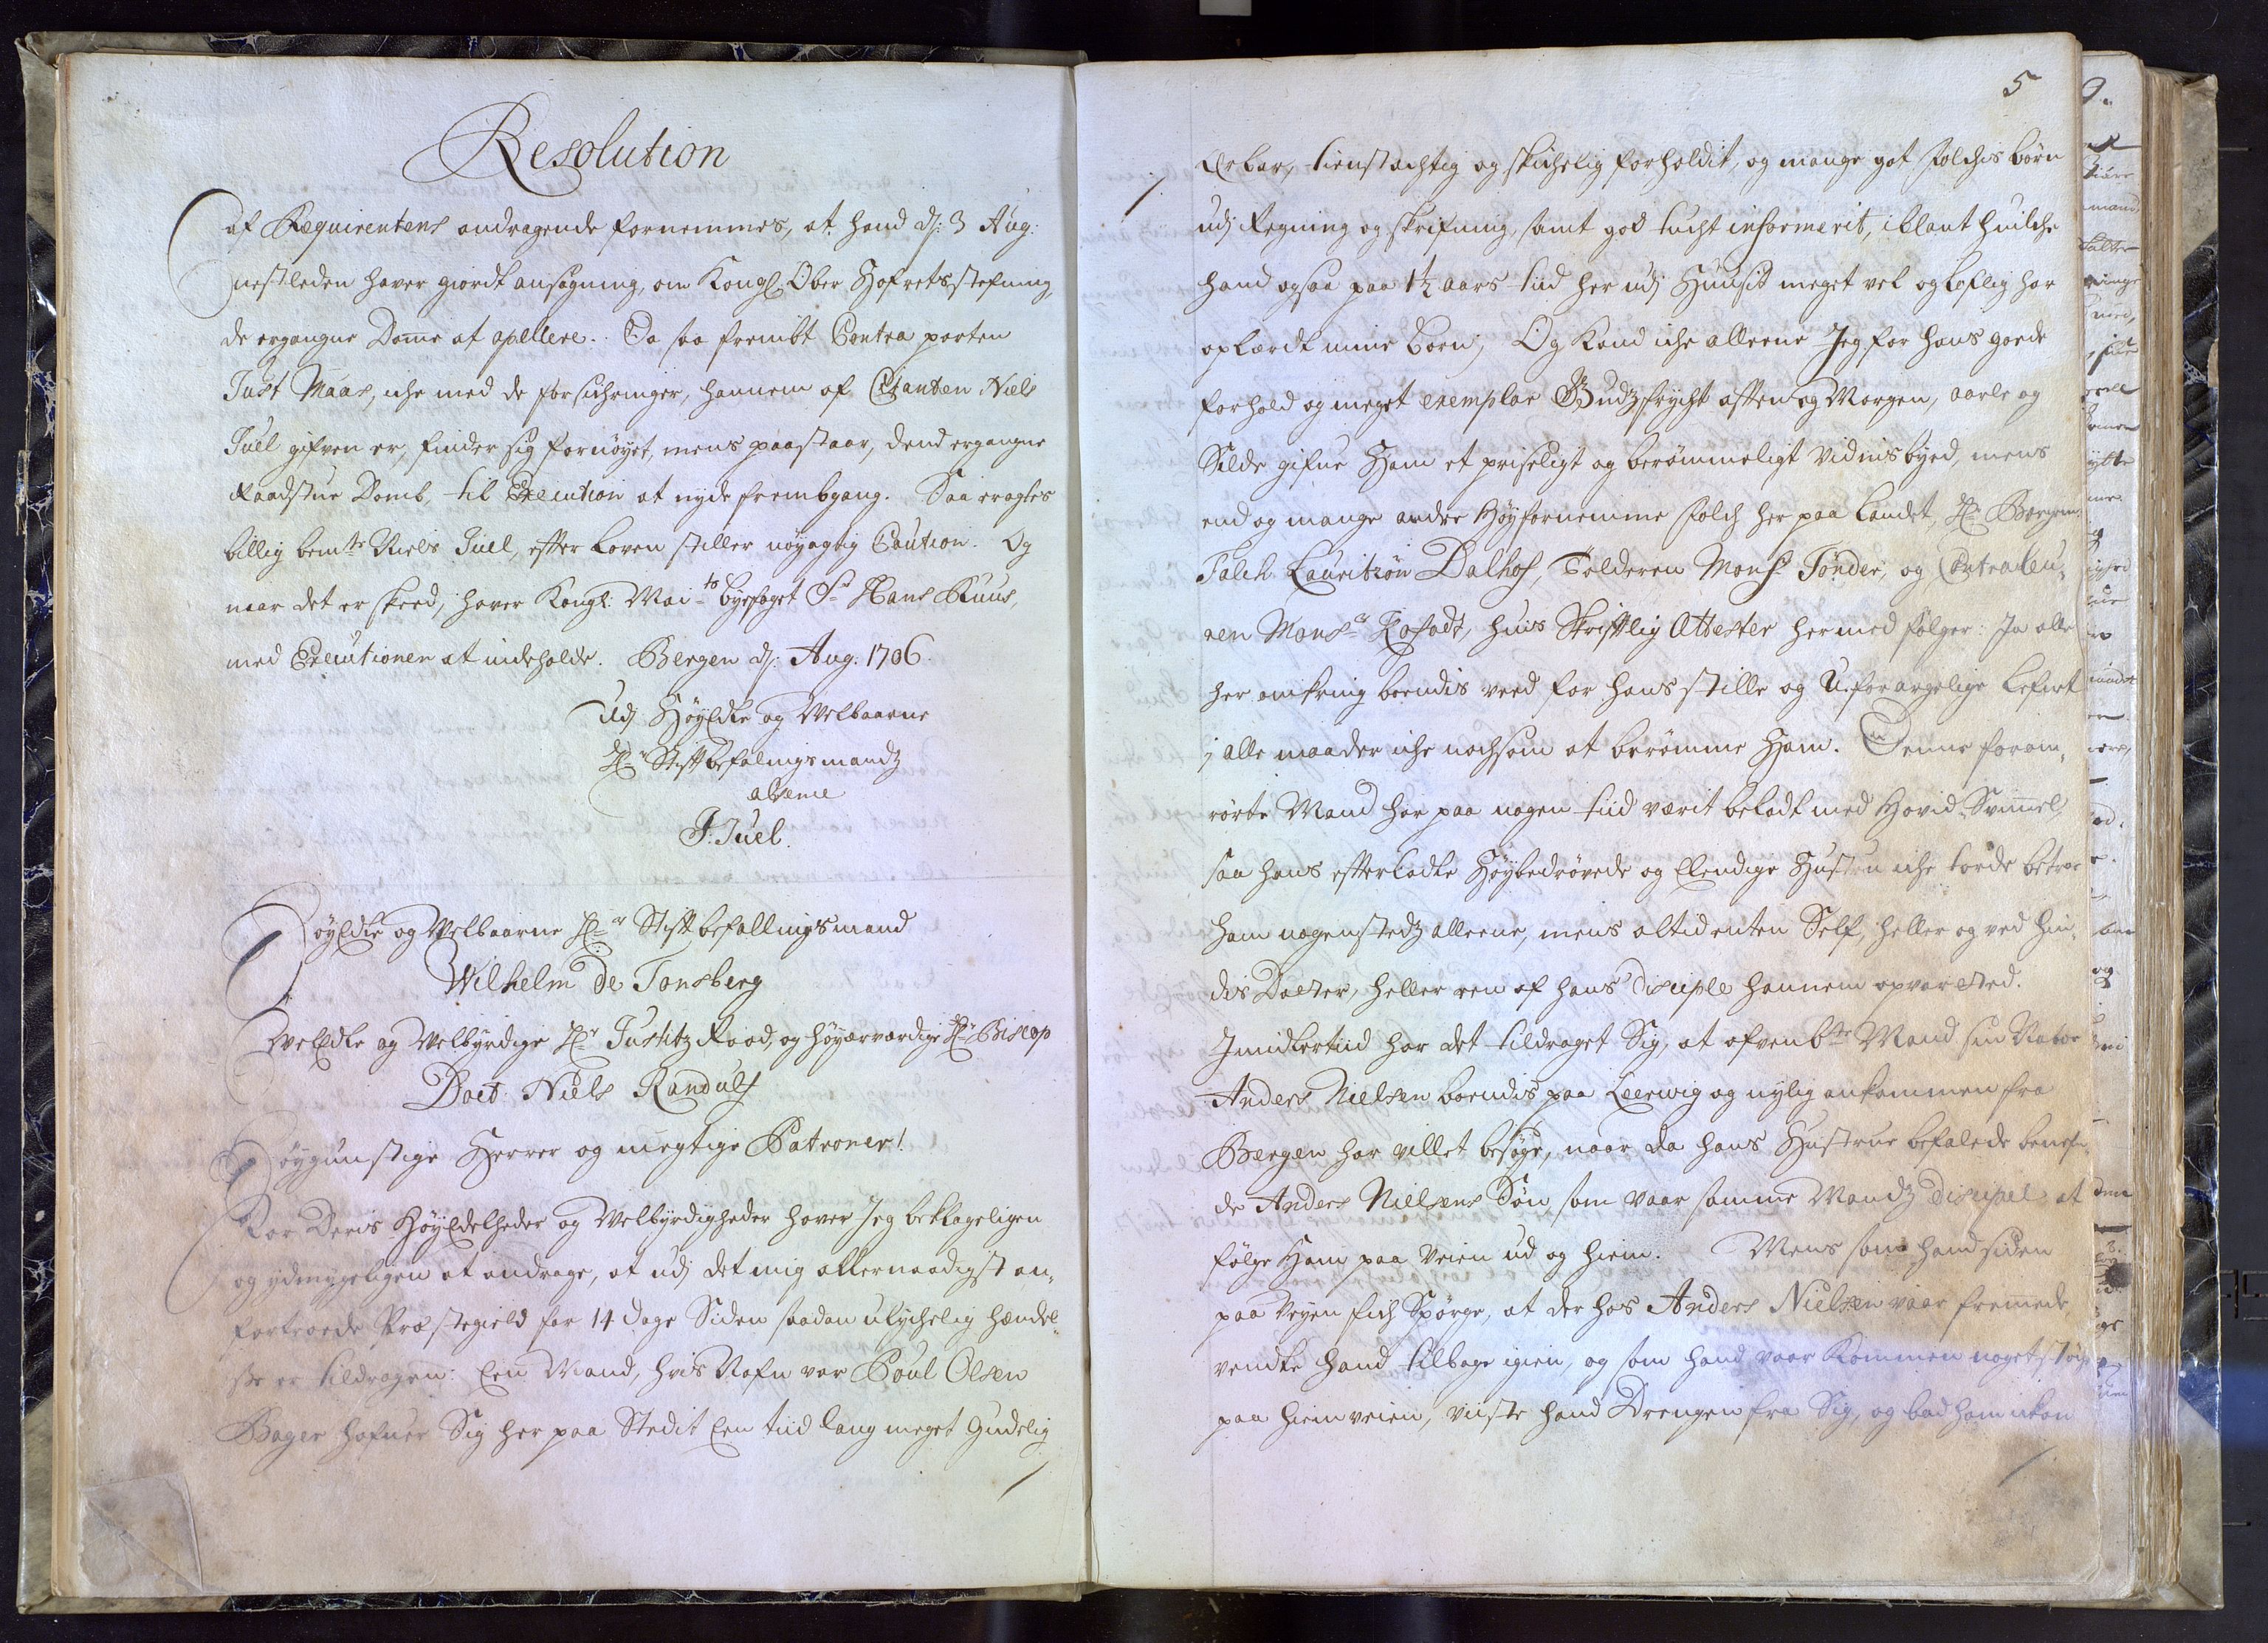 Resolution
af Reqvirentens andragende fornemmes, at hand dj: 3 Aug:
nestleden haver giordt ansøgning, om Kongl: Ober Hofrets stefning,
de ergangne Dome at apellere. Da saa frembt Contra parten
Just Maas, iche med de forsichringer, hannem af Citanten Niels
Juel gifven er, finder sig fornøyet, mens paastaar, dend ergangne
Raadstue Domb, til Execution at nyde frembgang. Saa eragtes
billig bemte Niels Juel, efter Loven stiller nøyagtig Caution. Og
naar det er skeed, haver Kongl: Mai-ts byefoget Sr Hans Ruus,
med Executionen at indeholde. Bergen dj: Aug. 1706.
Udj Høyedle og Velbaarne
Hr Stiftbefalingsmandz
absence
J: Juel.
Høyedle og Velbaarne Hr Stiftbefallingsmand
Wilhelm de Tonsberg
Veledle og Velbyrdige Hr Justitz Raad, og høyærværdige Hr Biscop
Doct: Niels Randulf
Høygunstige Herrer og megtige Patroner!
For Deris Høyedelheder og Velbyrdigheder haver Jeg beklageligen
og ydmygeligen at andrage, at udj det mig allernaadigst an-
fortroede Præstegield for 14 dage Siden saadan ulychelig hændel-
se er tildragen: Een Mand, hvis Nafn var Poul Olsen
Bager hafuer Sig her paa Stedit Een tiid lang meget Gudelig
5
Erbar, tienstachtig og skichelig forholdit, og mange got folchis børn
udj Regning og skrifning, samt god tucht informerit, iblant huilche
hand ogsaa paa 1½ aars tiid her udj Huusit meget vel og loflig har
oplærdt mine børn; Og Kand iche alleene Jeg for hans goede
forhold og meget exemplar Gudzfrycht afften og Morgen, aarle og
Silde gifue Ham et priseligt og berømmeligt Vidnisbyed, mens
end og mange andre Høyfornemme folch her paa Landet, Hr Borgem:
Palch Lauritzøn Dalhof, Tolderen Monsr Tønder, og Contraleu-
ren Monsr Kofodt, huis Skriftlig Attester hermed følger: Ja alle
her omkring boendis veed for hans stille og Uforargelige Lefnet
j alle maader iche nochsom at berømme Ham. Denne forom-
rørte Mand har paa nogen tiid værit beladt med Hovid-Svimmel,
saa hans efterladte Høybedrøvede og Elendige Hustru iche torde betroe
ham nogenstedz alleene, mens altid enten Self, heller og ved hin-
dis Dotter, heller een af hans Disciple hannem opvartted.
Jmidlertiid har det tildraget Sig, at ofvenbte Mand sin Naboe
Anders Nielsen boendis paa Leervig og nylig ankommen fra
Bergen har villet besøge, naar da hans Hustrue befalede benefn-
de Anders Nielsens Søn som vaar samme Mandz Discipel at
følge Ham paa Veien ud og hiem. Mens som hand siden
paa Veyen fich Spørge, at der hos Anders Nielsen vaar fremmede,
vendte hand tilbage igien, og som hand vaar Kommen noget støch
paa hiemveien, viiste hand Drengen fra Sig, og bad ham ikon